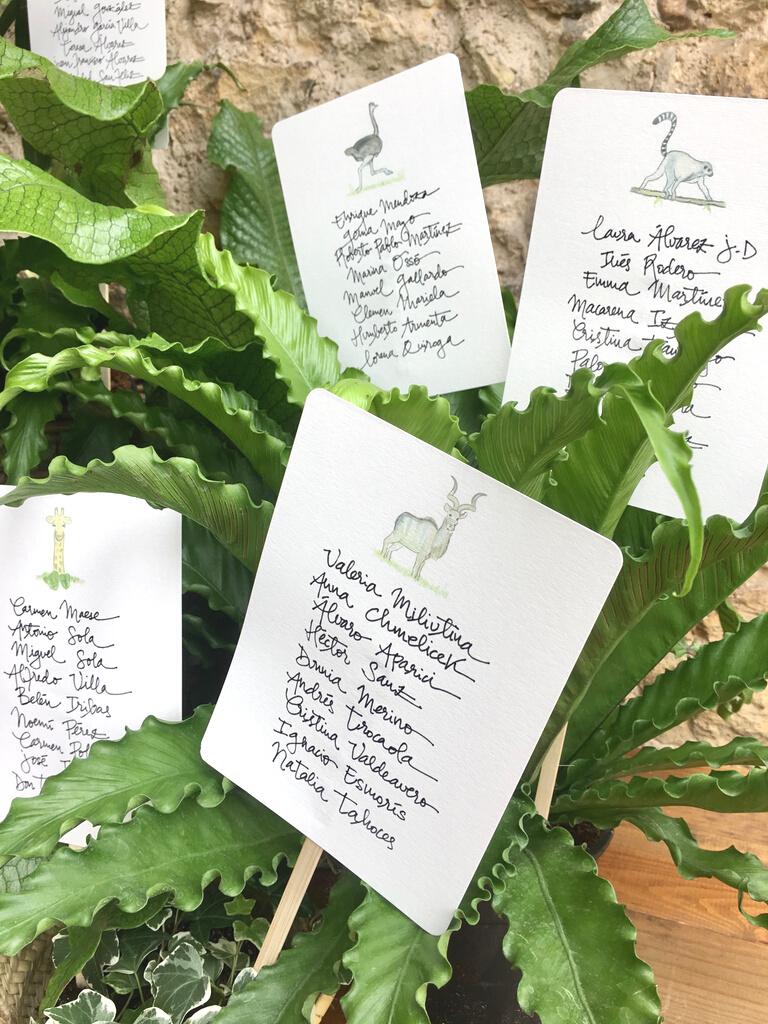 Miguel González
Alejandro García Villa
Teresa Álvarez
Juan Francisco Álvarez
Enrique Mendoza
Mayo
Roberto Pablo Martínez
Marina Ossé
Manuel Gallardo
Clemen Mariela
Humberto Armenta
Lorena Quiroga
Laura Álvarez J.D
Inés Rodero
Emma Martínez
Macarena Iz
Cristina
Palo
Carmen Maese
Antonio Sola
Miguel Sola
Alfredo Villa
Belén Iribas
Noemí Pérez
Carmen Pol
José
Valeria Miliutina
Anna Chmelicek
Álvaro Aparici
Héctor Sanz
Dunia Merino
Andrés Tirocaola
Cristina Valdeavero
Ignacio Esmorís
Natalia Tahoces